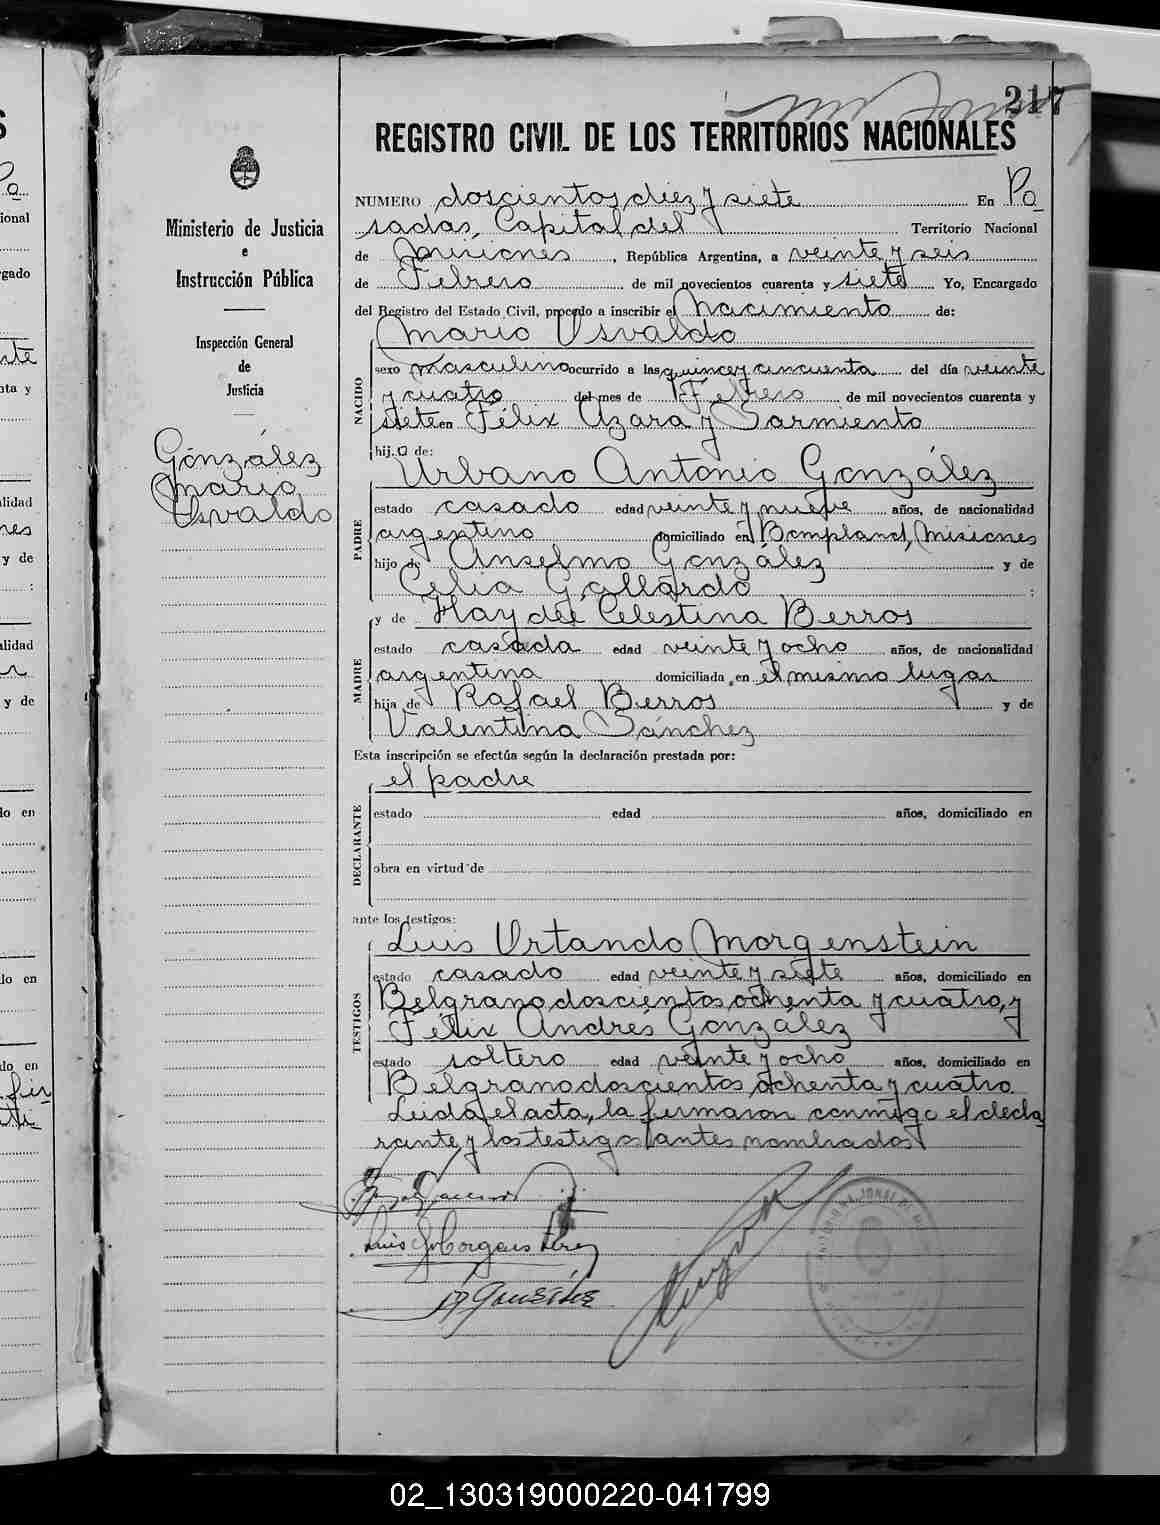 217
REGISTRO CIVIL DE LOS TERRITORIOS NACIONALES
Ministerio de Justicia
e
Instrucción Pública
Inspección General
de
Justicia
González
Mario
Osvaldo
NUMERO doscientos diez y siete En Po
sadas, Capital del Territorio Nacional
de Misiones, República Argentina, a veinte y seis
de Febrero de mil novecientos cuarenta y siete Yo, Encargado
del Registro del Estado Civil, procedo a inscribir el Nacimiento de:
Mario Osvaldo
NACIDO
sexo masculino ocurrido a las quince y cincuenta del día veinte
y cuatro del mes de Febrero de mil novecientos cuarenta y
siete en Félix Azara y Sarmiento
hijo de:
Urbano Antonio González
PADRE
estado casado edad veinte y nueve años, de nacionalidad
argentino domiciliado en Bompland, Misiones
hijo de Anselmo González y de
Celia Gallardo :
y de Haydeé Celestina Berros
MADRE
estado casada edad veinte y ocho años, de nacionalidad
argentina domiciliada en el mismo lugar
hija de Rafael Berros y de
Valentina Sánchez
Esta inscripción se efectúa según la declaración prestada por:
el padre
DECLARANTE
estado edad años, domiciliado en
obra en virtud de
ante los testigos:
Luis Ortando Morgenstein
TESTIGOS
estado casado edad veinte y siete años, domiciliado en
Belgrano doscientos ochenta y cuatro, y
Félix Andrés González
estado soltero edad veinte y ocho años, domiciliado en
Belgrano doscientos ochenta y cuatro.
Leida el acta, la firmaron conmigo el decla
rante y los testigos antes nombrados
02_130319000220-041799